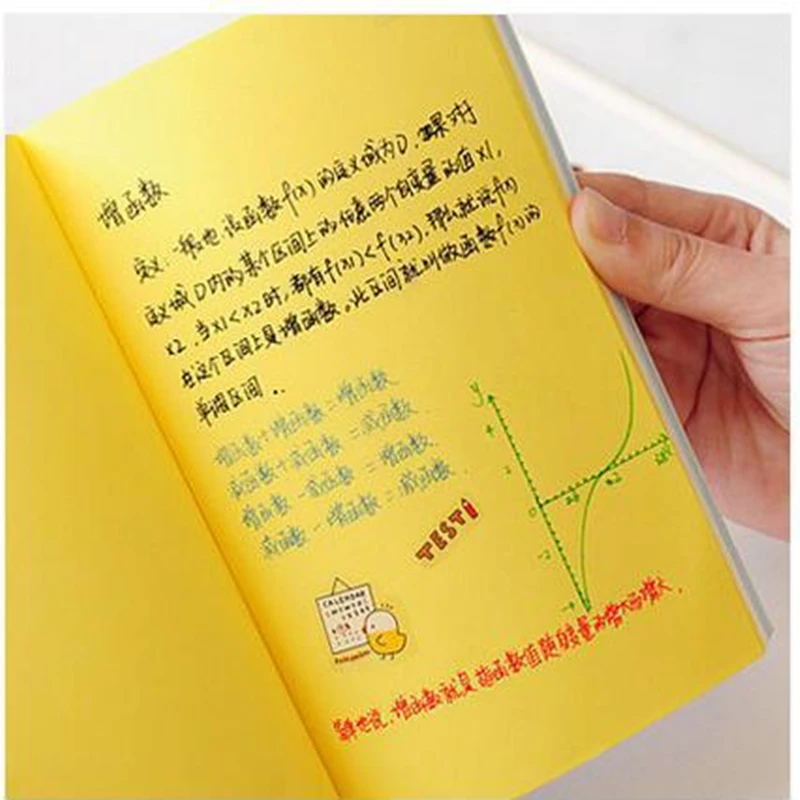 增函数
定义:一般地,设函数f(x)的定义域为D,如果对
定义域D内的某个区间上的任意两个自变量的值x1,
x2,当x1<x2时,都有f(x1)<f(x2),那么就说f(x)
在这个区间上是增函数。此区间就叫做函数f(x)的
单调区间..
增函数+增函数=增函数
减函数+减函数=减函数
增函数-减函数=增函数
减函数-增函数=减函数
y
4
2
0
-2
TEST!
CALENDAR
简单地说,增函数就是指函数值随自变量的增大而增大.